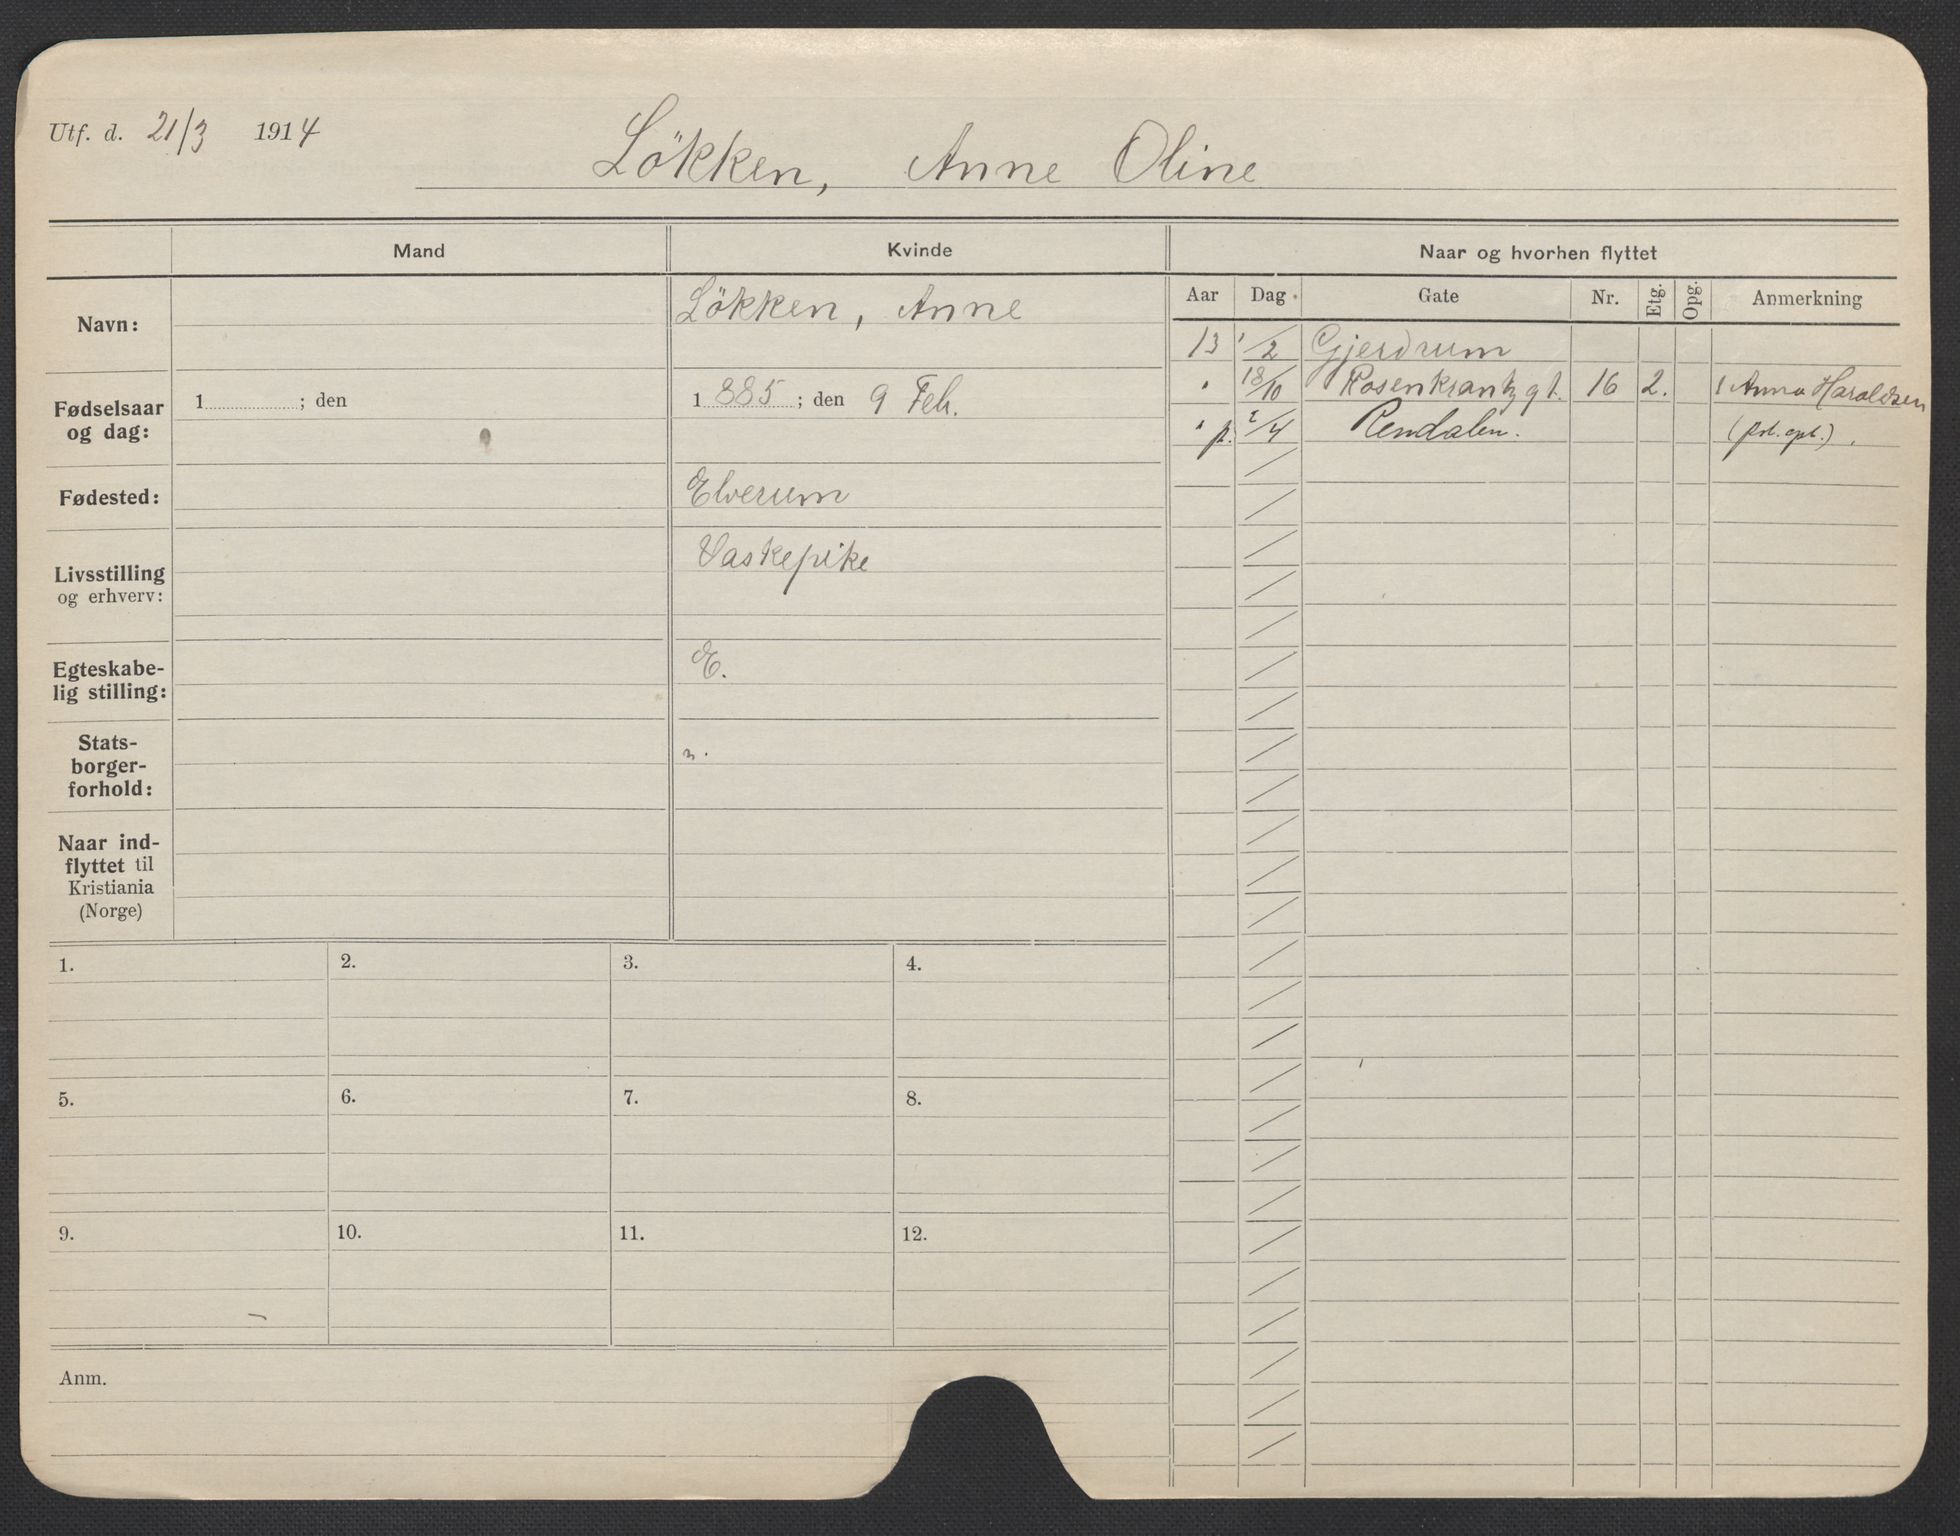 Utf. d. 21/3 1914
Lökken, Anne Oline
Mand
Kvinde
Naar og hvorhen flyttet
Aar Dag Gate Nr. Etg. Opg. Anmerkning
Navn:
Lökken, Anne
Fødselsaar
og dag:
1 ; den
1 885 ; den 9 Feb.
Fødested:
Elverum
Livsstilling
og erhverv:
Vaskepike
Egteskabe-
lig stilling:
E.
Stats-
borger-
forhold:
n.
Naar ind-
flyttet til
Kristiania
(Norge)
13 1/2 Gjerdrum
" 18/10 Rosenkrantz gt. 16 2. Anna Haroldsen
" 2/4 Rendalen.
1. 2. 3. 4.
5. 6. 7. 8.
9. 10. 11. 12.
Anm.